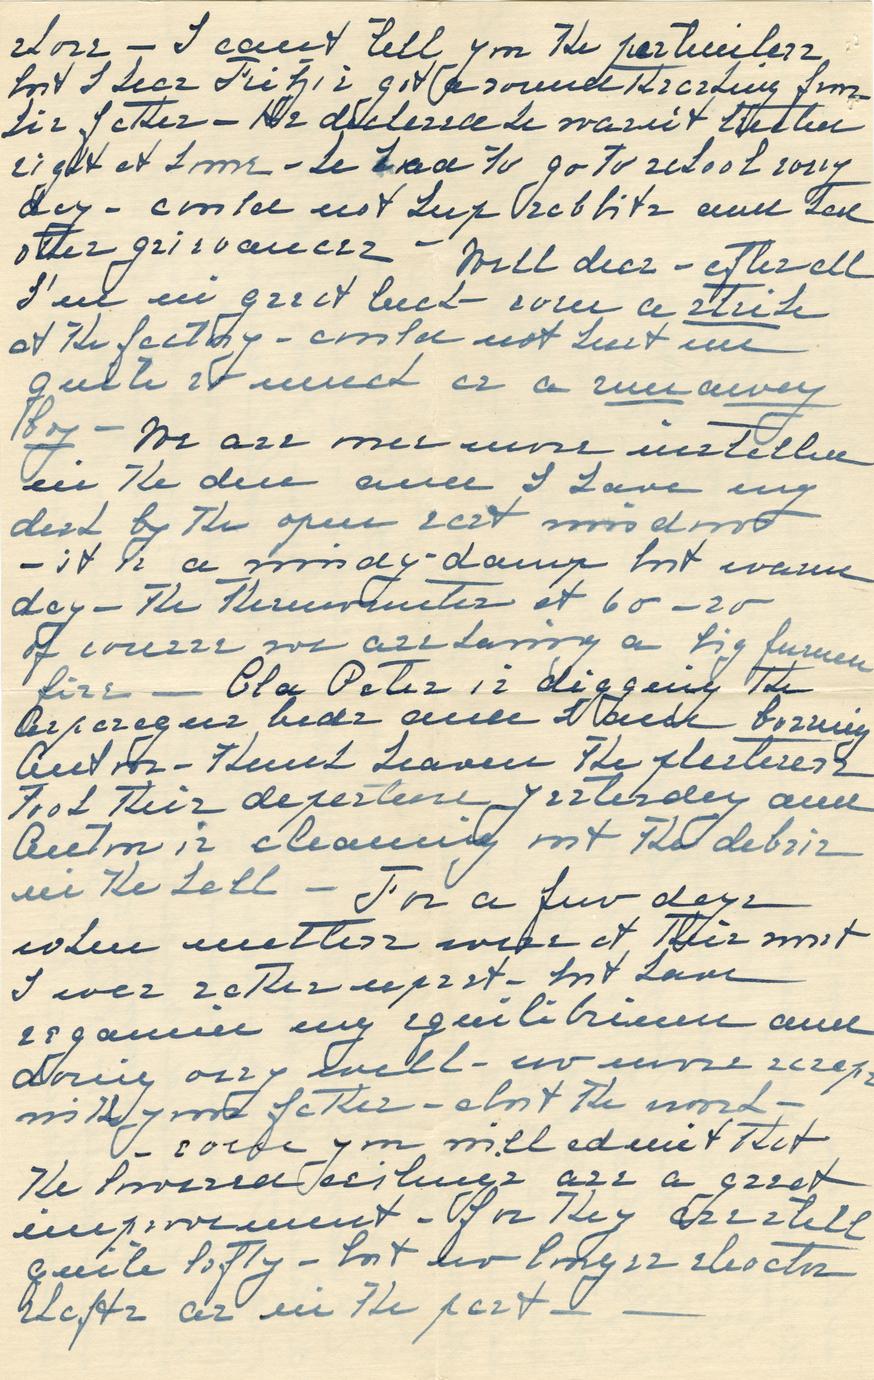 store — I can't tell you the particulars
but I hear Fritzi is got a sound thrashing from
his father — He declared he wasn't treated
right at home - he had to go to school every
day - could not keep rabbits and had
other grievances —
Well dear - after all
I'm in great luck - even a strike
at the factory - could not hurt me
quite so much as a run away
boy —
We are once more installed
in the den and I have my
desk by the open east window
- it is a windy-damp but warm
day - the thermometer at 60 - so
of course we are having a big furnace
fire — Ola Peter is digging the
Asparagus beds and
Anton - thank heaven the plasterers
took their departure yesterday and
Anton is cleaning out the debris
in the hall —
For a few days
when matters were at their worst
I was rather upset - but have
regained my equilibrium and
doing very well - no more scraps
with your father - about the work -
- you will admit that
the lowered ceilings are a great
improvement - for they are still
quite lofty - but no longer elevator
shafts as in the past — —